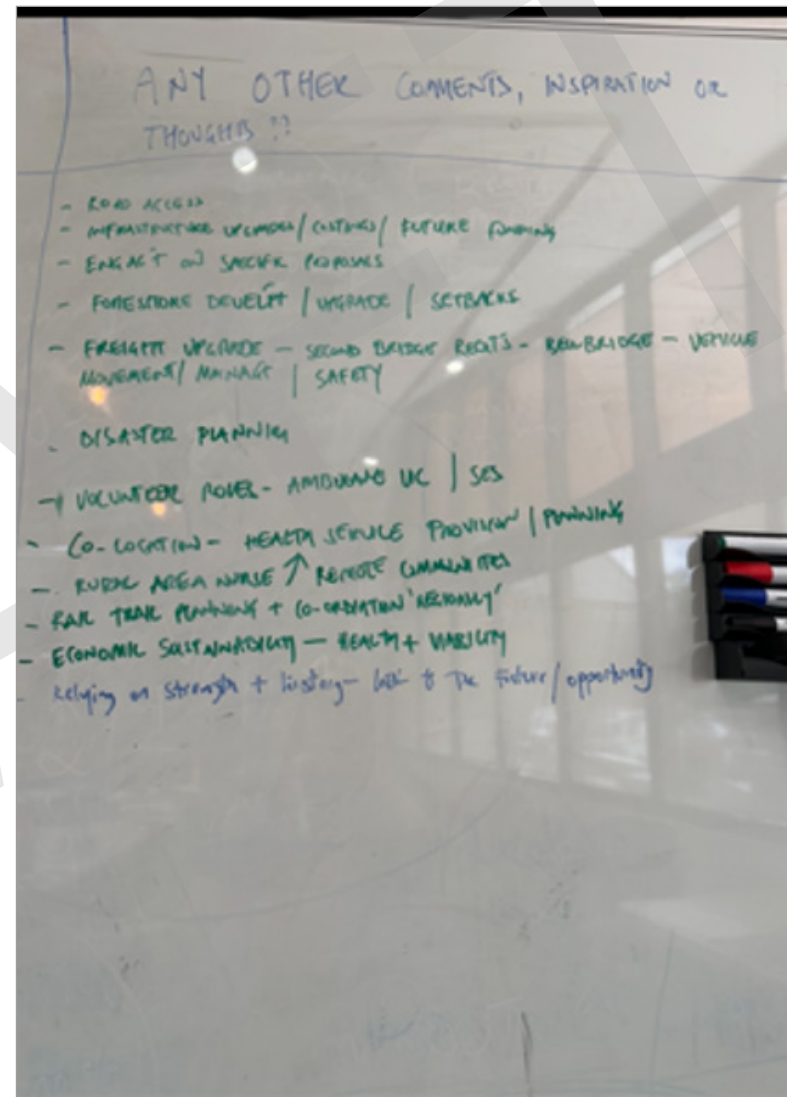 ANY OTHER COMMENTS, INSPIRATION OR
THOUGHTS ??
- ROAD ACCESS
- INFRASTRUCTURE UPGRADES / COSTINGS / FUTURE FUNDING
- ENGAG'T ON SPECIFIC PROPOSALS
- FORESHORE DEVEL'T / UPGRADE / SETBACKS
- FREIGHT UPGRADE - SECOND BRIDGE - VEHICLE
MOVEMENT / MANAG'T / SAFETY
- DISASTER PLANNING
- VOLUNTEER ROLES - AMBULANCE / SES
- CO-LOCATION - HEALTH SERVICE PROVISION / PLANNING
- RURAL AREA NURSE ↑ REMOTE COMMUNITIES
- RAIL TRAIL PLANNING + CO-ORDINATION 'REGIONALLY'
- ECONOMIC SUSTAINABILITY - HEALTH + VIABILITY
- Relying on strength + history - look to the future / opportunity